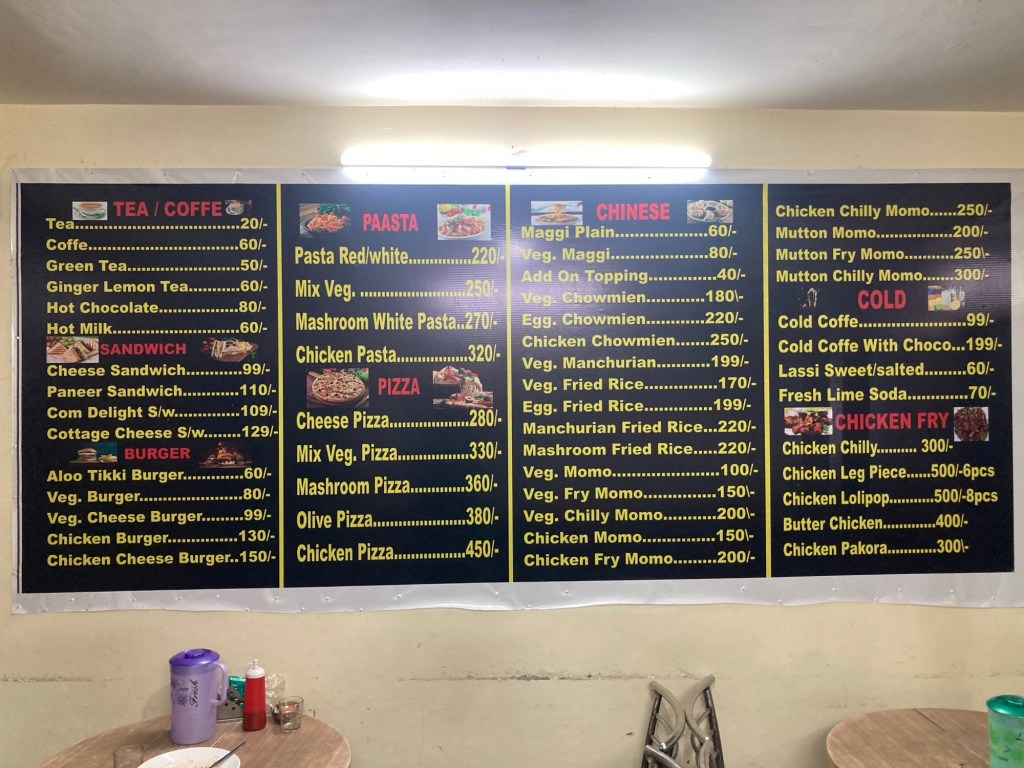 TEA / COFFE
Tea.................................20/-
Coffe..............................60/-
Green Tea......................50/-
Ginger Lemon Tea..........60/-
Hot Chocolate................80/-
Hot Milk.........................60/-
SANDWICH
Cheese Sandwich...........99/-
Paneer Sandwich...........110/-
Com Delight S/w............109/-
Cottage Cheese S/w.......129/-
BURGER
Aloo Tikki Burger............60/-
Veg. Burger.....................80/-
Veg. Cheese Burger........99/-
Chicken Burger..............130/-
Chicken Cheese Burger..150/-
PAASTA
Pasta Red/white..............220/-
Mix Veg. ........................250/-
Mashroom White Pasta..270/-
Chicken Pasta................320/-
PIZZA
Cheese Pizza..................280/-
Mix Veg. Pizza................330/-
Mashroom Pizza.............360/-
Olive Pizza.....................380/-
Chicken Pizza.................450/-
CHINESE
Maggi Plain....................60/-
Veg. Maggi.....................80/-
Add On Topping..............40/-
Veg. Chowmien..............180\-
Egg. Chowmien..............220/-
Chicken Chowmien.........250/-
Veg. Manchurian............199/-
Veg. Fried Rice...............170/-
Egg. Fried Rice...............199/-
Manchurian Fried Rice...220/-
Mashroom Fried Rice.....220/-
Veg. Momo....................100/-
Veg. Fry Momo...............150\-
Veg. Chilly Momo...........200\-
Chicken Momo...............150\-
Chicken Fry Momo.........200/-
Chicken Chilly Momo......250/-
Mutton Momo................200/-
Mutton Fry Momo...........250\-
Mutton Chilly Momo.......300/-
COLD
Cold Coffe......................99/-
Cold Coffe With Choco...199/-
Lassi Sweet/salted.........60/-
Fresh Lime Soda............70/-
CHICKEN FRY
Chicken Chilly.......... 300/-
Chicken Leg Piece......500/-6pcs
Chicken Lolipop..........500/-8pcs
Butter Chicken............400/-
Chicken Pakora............300\-
Fresh